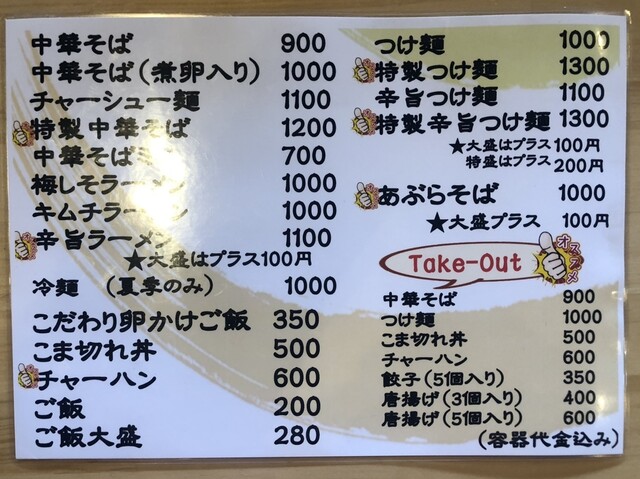 中華そば 900
中華そば(煮卵入り) 1000
チャーシュー麺 1100
特製中華そば 1200
中華そばミニ 700
梅しそラーメン 1000
キムチラーメン 1000
辛旨ラーメン 1100
★大盛はプラス100円
冷麺 (夏季のみ) 1000
こだわり卵かけご飯 350
こま切れ丼 500
チャーハン 600
ご飯 200
ご飯大盛 280
つけ麺 1000
特製つけ麺 1300
辛旨つけ麺 1100
特製辛旨つけ麺 1300
★大盛はプラス100円
特盛はプラス200円
あぶらそば 1000
★大盛プラス 100円
Take-Out
オススメ
中華そば 900
つけ麺 1000
こま切れ丼 500
チャーハン 600
餃子(5個入り) 350
唐揚げ(3個入り) 400
唐揚げ(5個入り) 600
(容器代金込み)